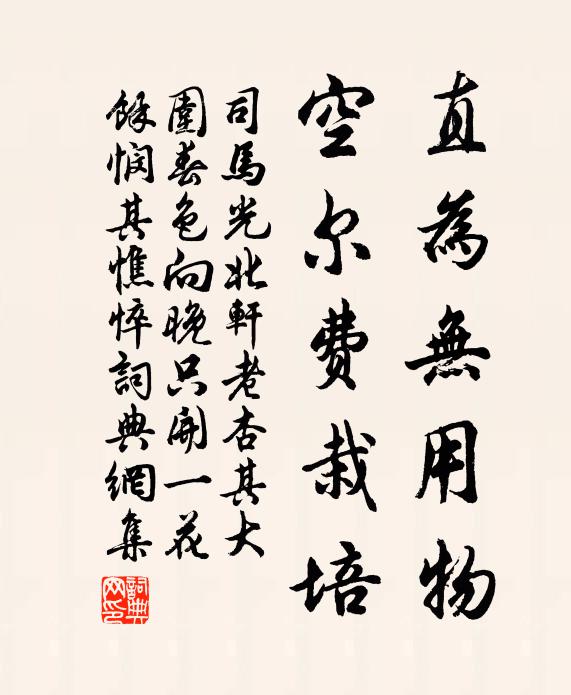 直為無用物
空尔費栽培
司馬光北軒老杏其大
圍春色向晚只開一花
餘憫其憔悴詞典網集
詞典
网印